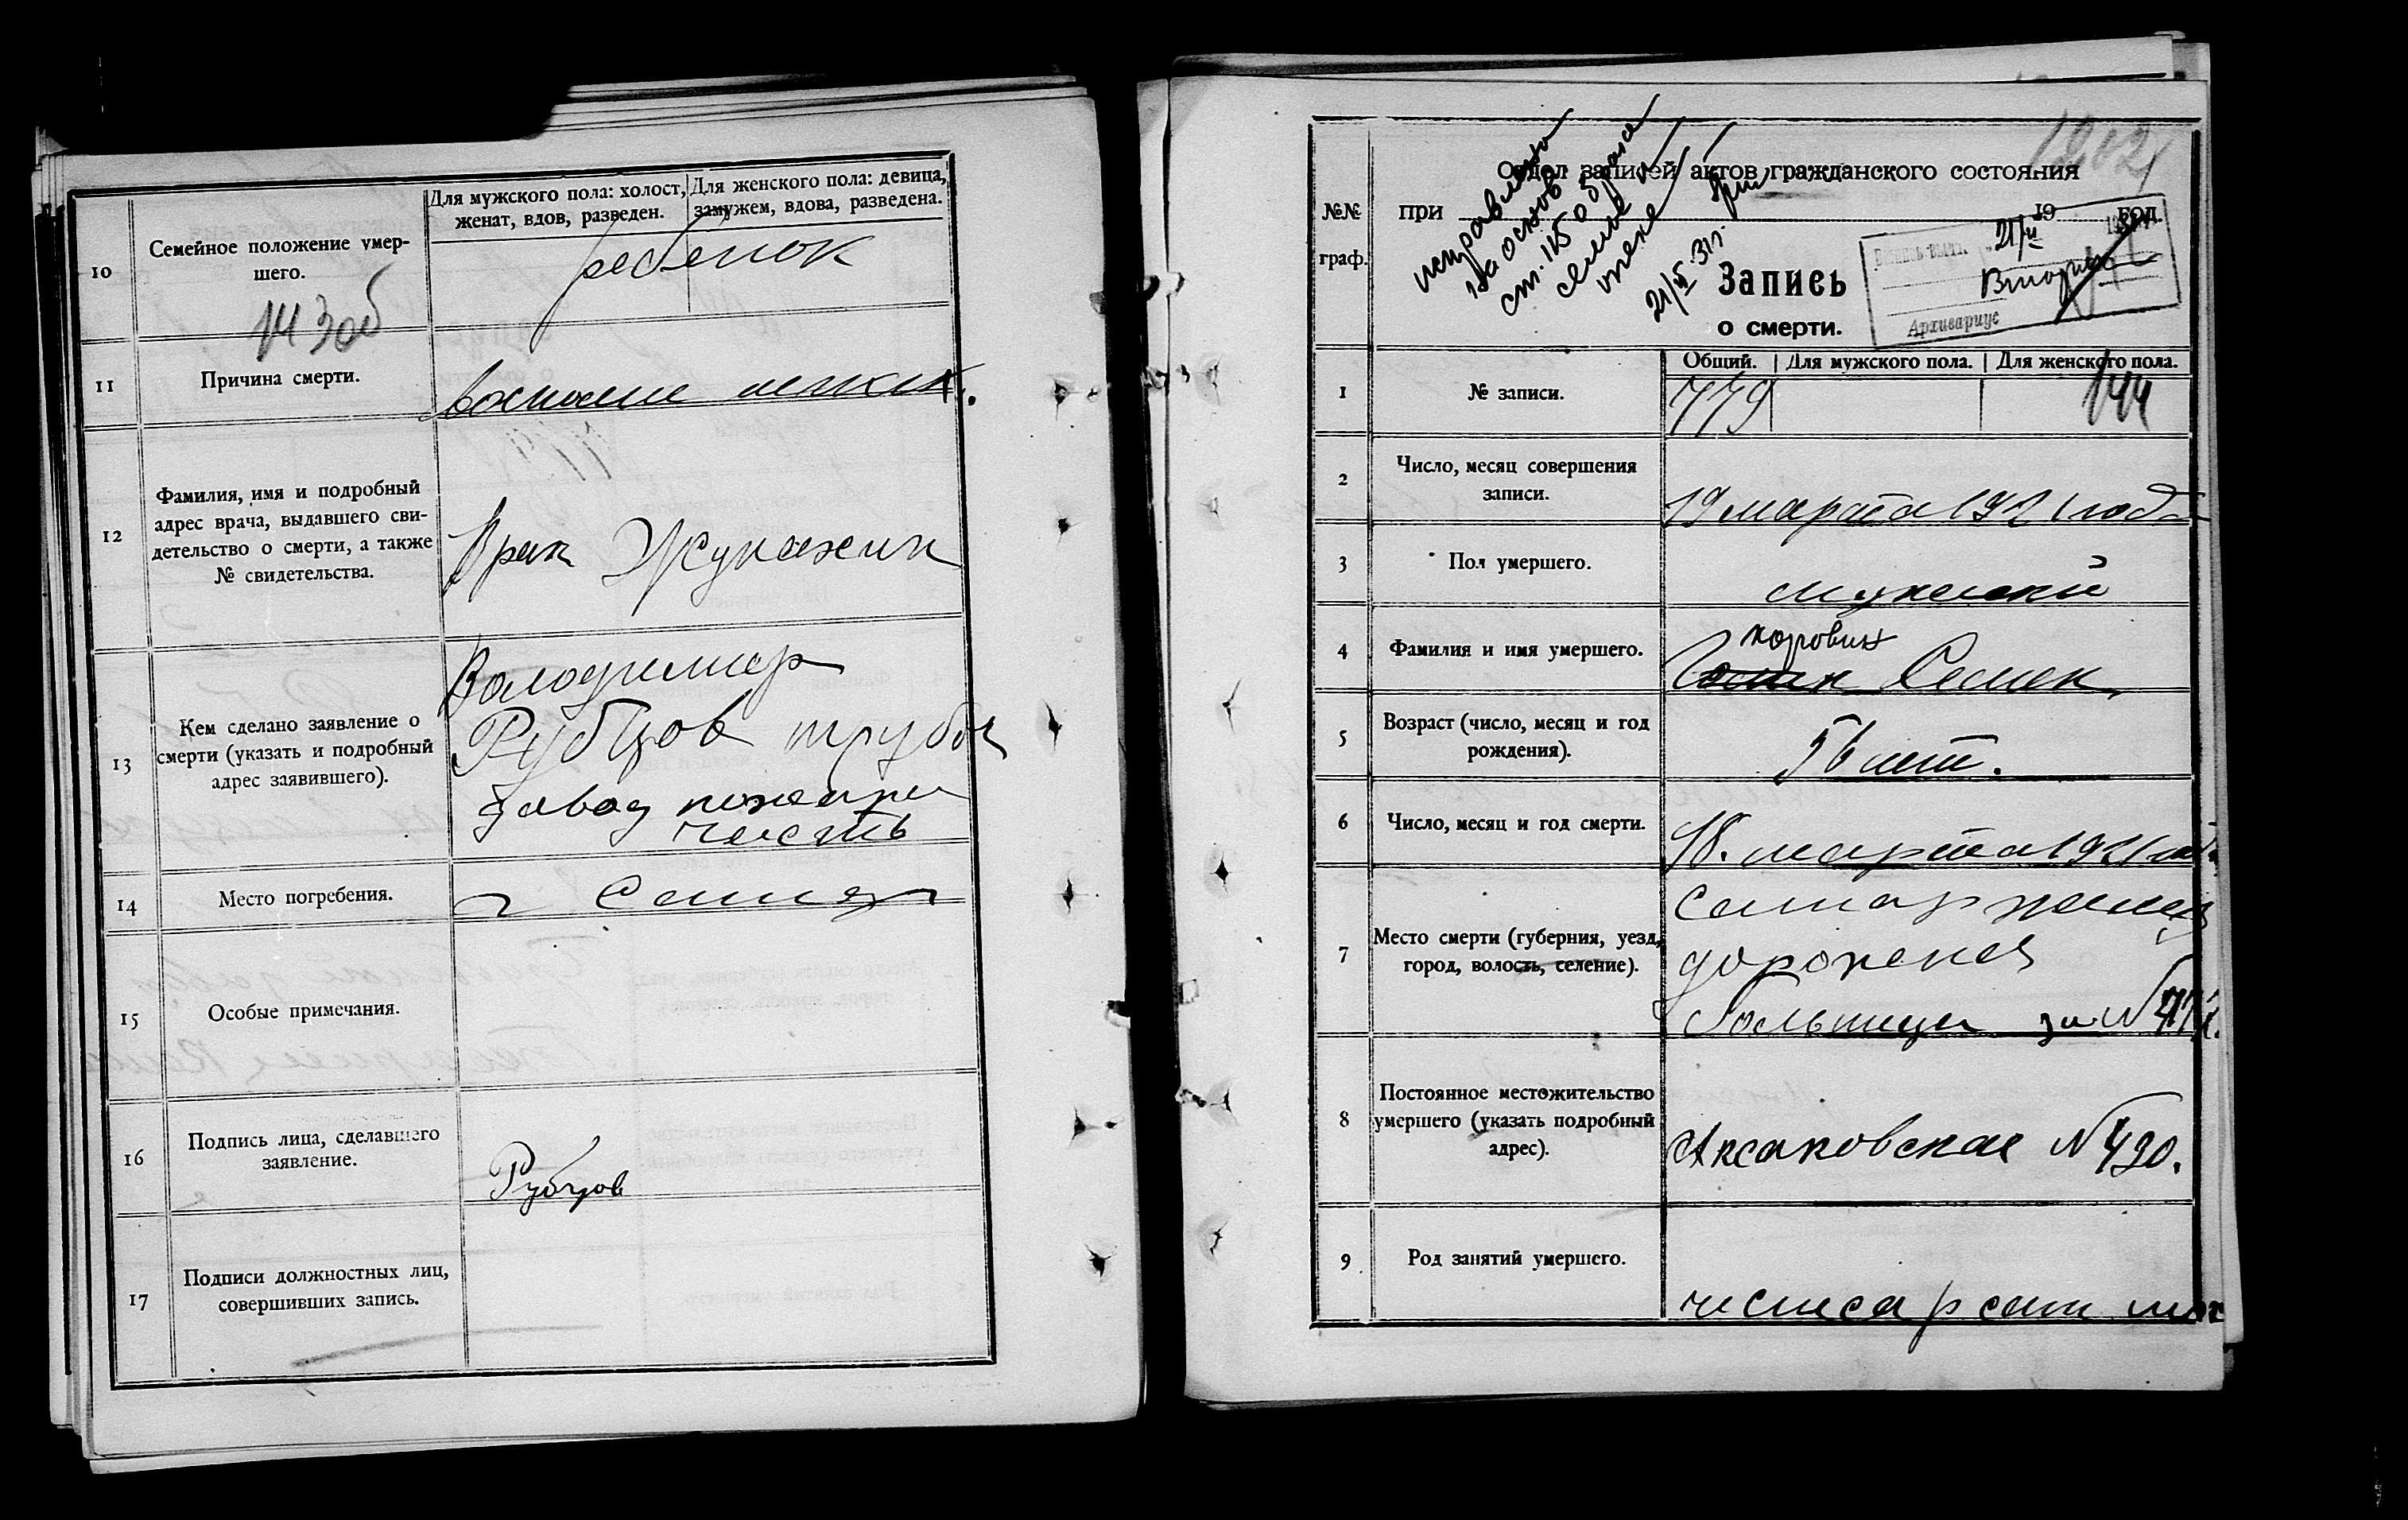 10
Семейное положение умер-
шего.
Для мужского пола: холост,
женат, вдов, разведен.
Для женского пола: девица,
замужем, вдова, разведена.
ребенок
11
Причина смерти.
12
Фамилия, имя и подробный
адрес врача, выдавшего сви-
детельство о смерти, а также
№ свидетельства.
Врач
13
Кем сделано заявление о
смерти (указать и подробный
адрес заявившего).
Володимир
Рубцов трубо
завод пожарн
часть
14
Место погребения.
15
Особые примечания.
16
Подпись лица, сделавшего
заявление.
Рубцов
17
Подписи должностных лиц,
совершивших запись.
№№
граф.
Отдел записей актов гражданского состояния
при
19 год.
исправлено
на основ
ст. 115 о браке
семье и
опеке
21/VI 31г.
Запись
о смерти.
21/VI
Вторич
Архивариус
1
№ записи.
Общий. Для мужского пола. Для женского пола.
779 144
2
Число, месяц совершения
записи.
19 марта 1921 года
3
Пол умершего.
мужской
4
Фамилия и имя умершего.
Коровин
Семен
5
Возраст (число, месяц и год
рождения).
56 лет.
6
Число, месяц и год смерти.
18. марта 1921 года
7
Место смерти (губерния, уезд,
город, волость, селение).
Самар желез
дорожная
больница за №
8
Постоянное местожительство
умершего (указать подробный
адрес).
Аксаковская №
9
Род занятий умершего.